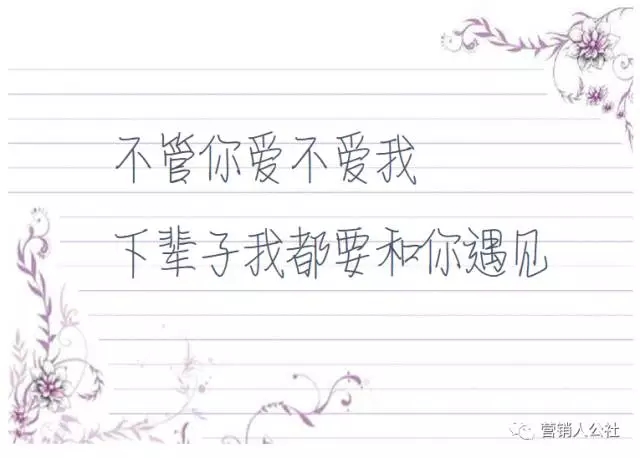 不管你爱不爱我
下辈子我都要和你遇见
营销人公社